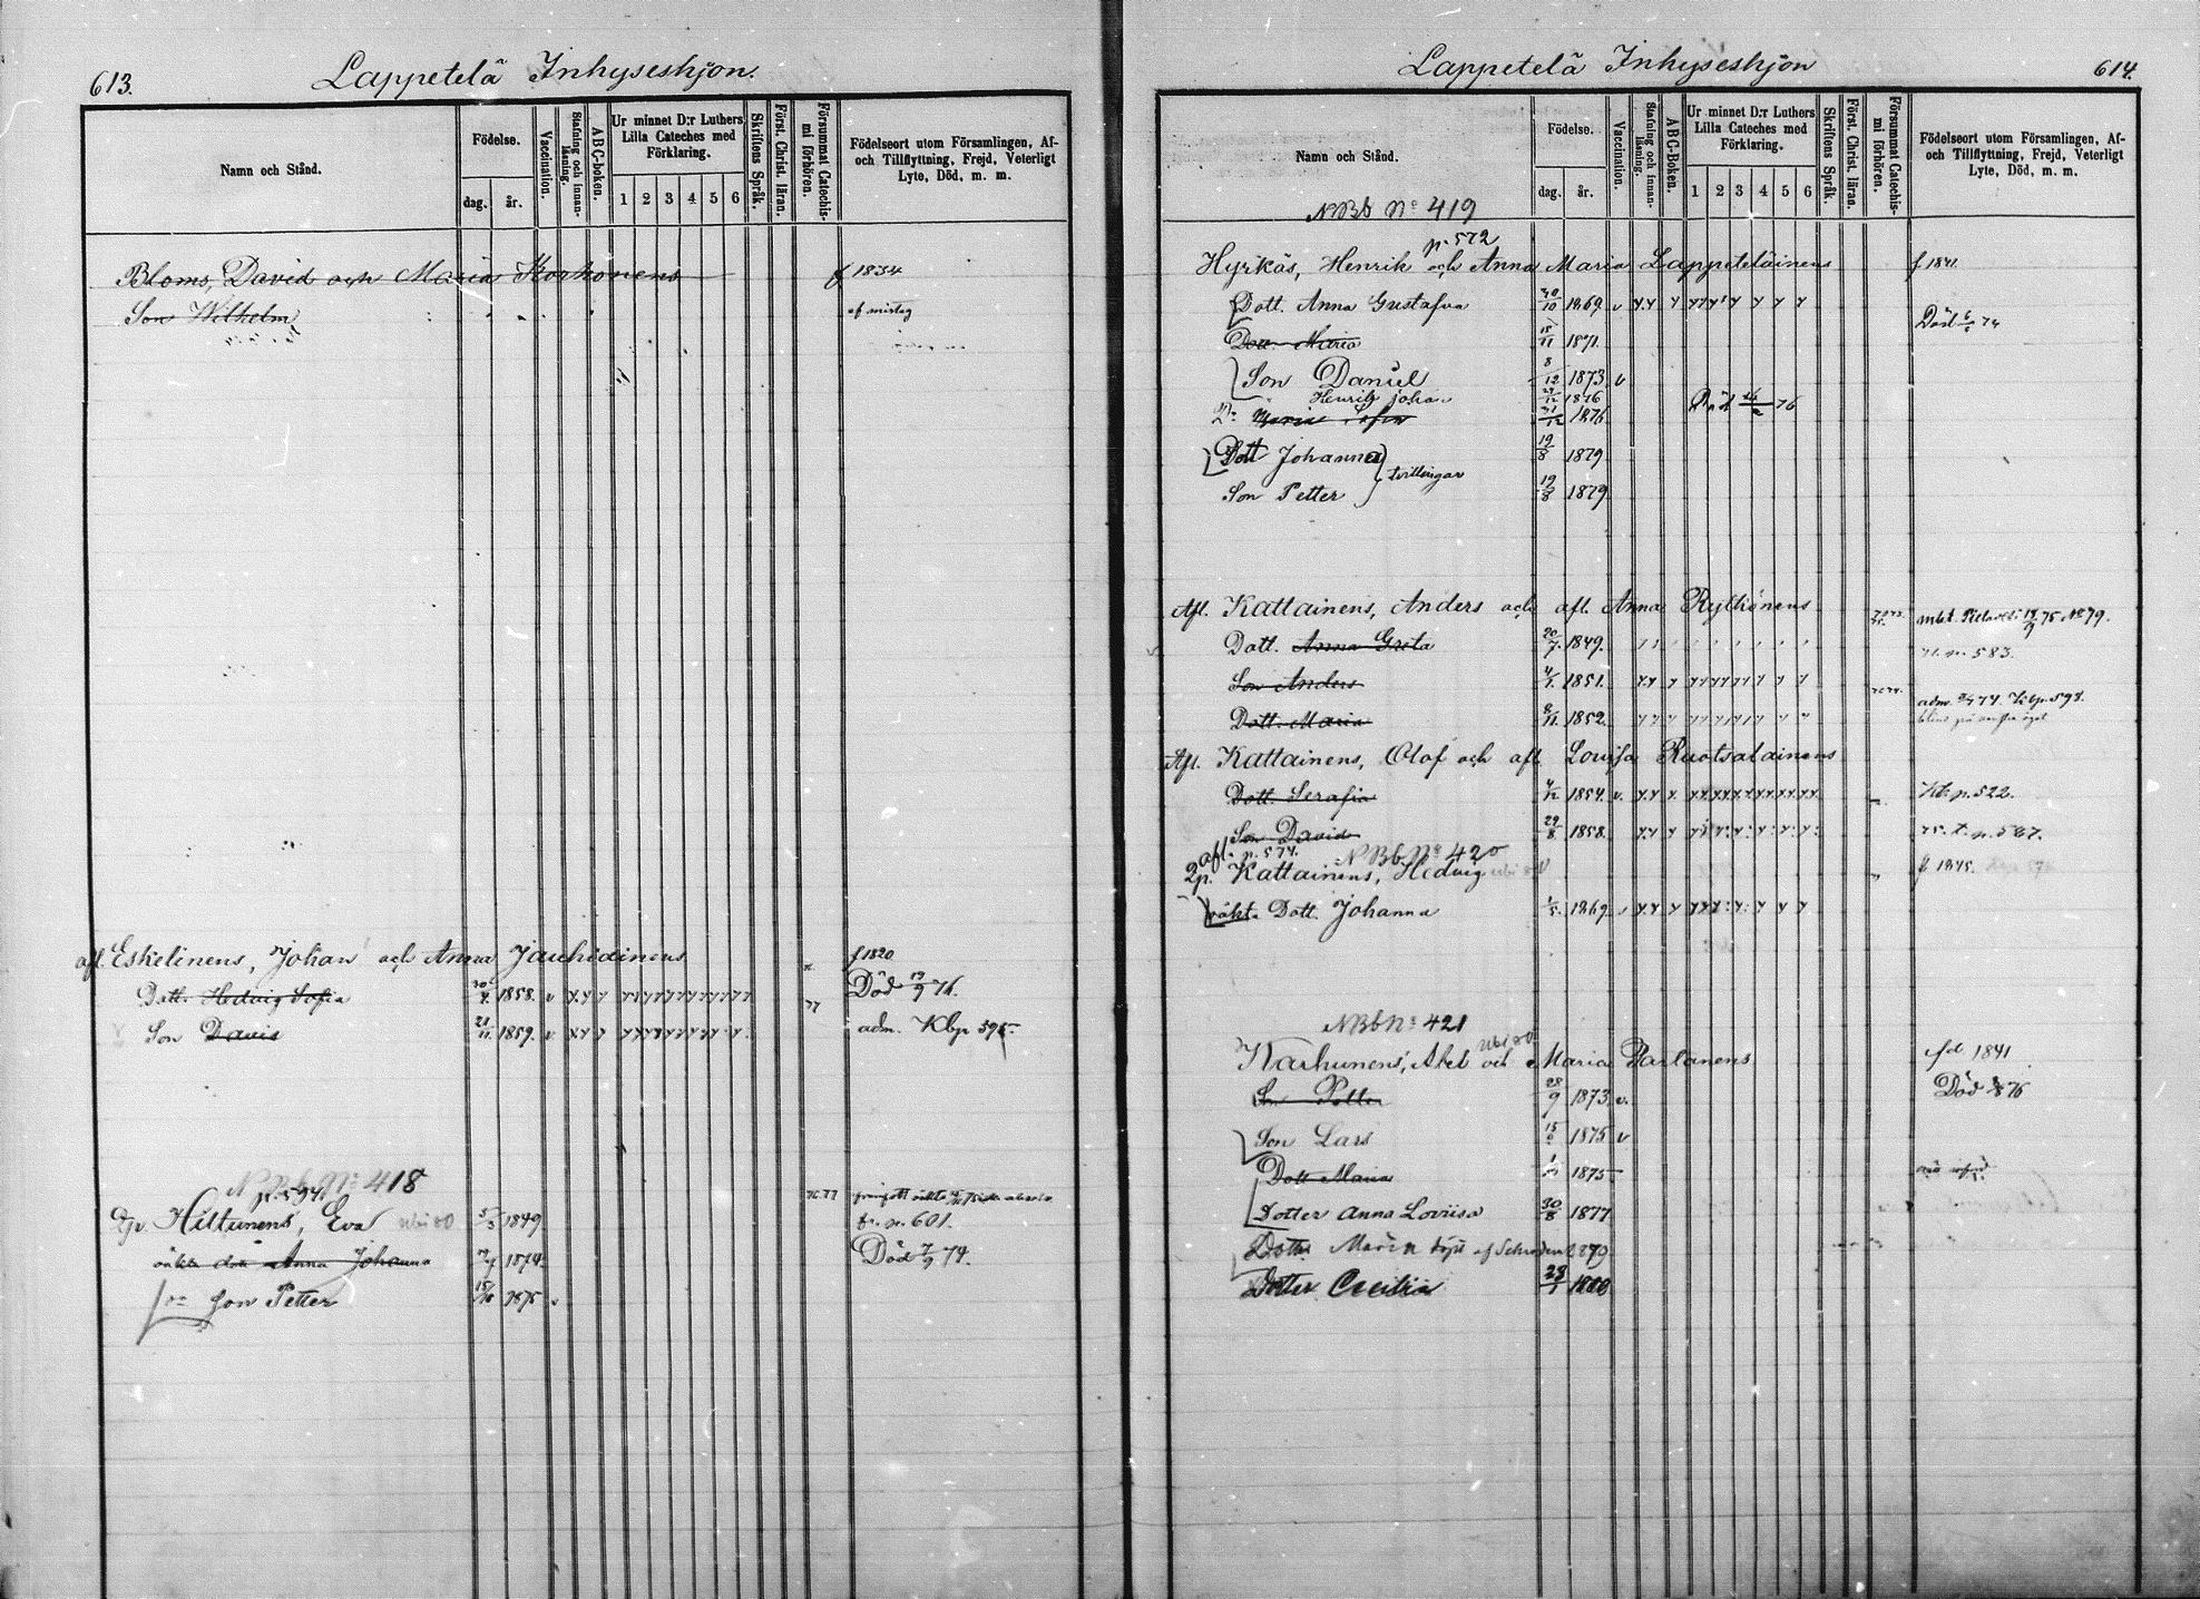 613.
Lappetelä Inhyseshjon.
Namn och Stånd.
Födelse.
dag. år.
Vaccination.
Stafning och innanläsning.
ABC-boken.
Ur minnet D:r Luthers Lilla Cateches med Förklaring.
1 2 3 4 5 6
Skriftens Språk.
Först. Christ. läran.
Försummat Catechismi förhören.
Födelseort utom Församlingen, Af- och Tillflyttning, Frejd, Veterligt Lyte, Död, m. m.
Bloms, David och Maria Korhonens f 1834
Son Wilhelm af mistag
afl. Eskelinens, Johan och Anna Jauhiainens f 1820
Dott. Hedvig Sofia 1858. v Död 76.
Son David 21/11 1859. v 77 adm. Kbp 595
N Bb No 418
p. 594
Hiltunens, Eva ubi 80 5/3 1849 76.77 p. 601.
oäkta dott Anna Johanna 1874 Död 7/9 74.
Son Petter 15/10 1875
614.
Lappetelä Inhyseshjon
Namn och Stånd.
Födelse.
dag. år.
Vaccination.
Stafning och innanläsning.
ABC-Boken.
Ur minnet D:r Luthers Lilla Cateches med Förklaring.
1 2 3 4 5 6
Skriftens Språk.
Först. Christ. läran.
Försummat Catechismi förhören.
Födelseort utom Församlingen, Af- och Tillflyttning, Frejd, Veterligt Lyte, Död, m. m.
N Bb No 419
p. 572
Hyrkäs, Henrik och Anna Maria Lappeteläinens f 1841.
Dott. Anna Gustafva 30/10 1869. v
Dott. Maria 15/11 1871. Död 74
Son Daniel 8/12 1873 v
Henrik Johan 1876
Maria Sofia 1876 Död 76
Dott Johanna 19/8 1879
tvillingar
Son Petter 19/8 1879
Afl. Kattainens, Anders och afl. Anna Rytkönens
Dott. Anna Greta 20/7 1849. p. 583.
Son Anders 1851.
Dott. Maria 8/11 1852.
Afl. Kattainens, Olof och afl. Lovisa Ruotsalainens
Dott. Serafia 4/12 1854. v. p. 522.
Son David 29/8 1858. p. 567.
afl. p. 574. N Bb No 420
Kattainens, Hedvig f 1845.
oäkt. Dott. Johanna 1/5 1869.
N Bb No 421
ubi 80
Karhunens, Abel och Maria Partanens fd 1841
Son Petter 28/9 1873 v. Död 76
Son Lars 1875 v
Dott Maria 1875
Dotter Anna Lovisa 30/8 1877
Dotter Maria döpt af 1879
Dotter Cecilia 1880